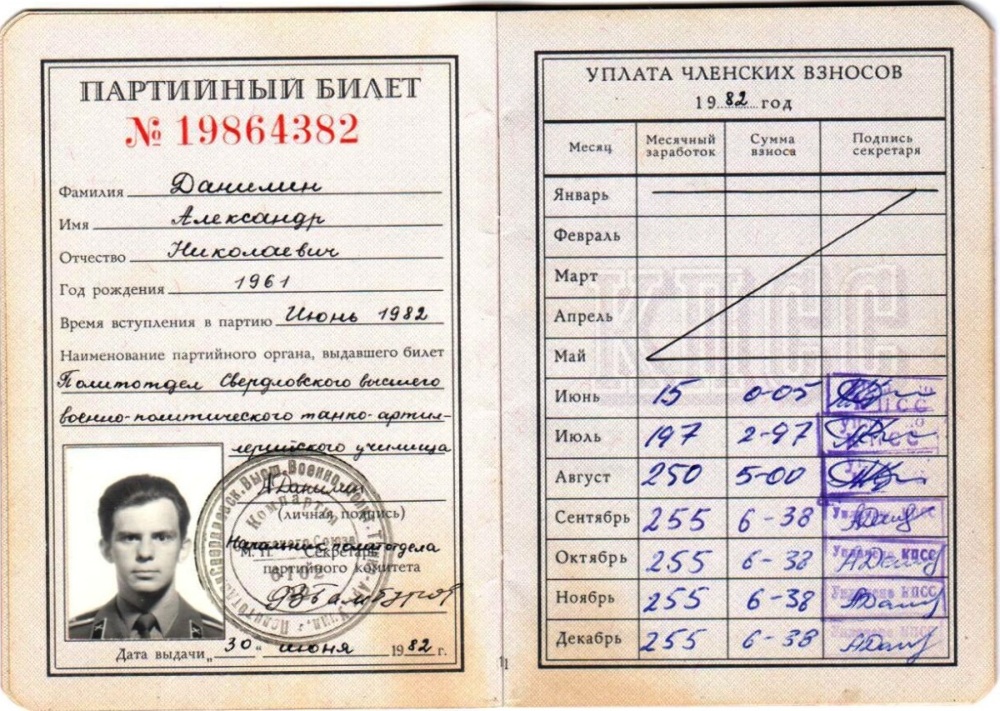 ПАРТИЙНЫЙ БИЛЕТ
№ 19864382
Фамилия Данилин
Имя Александр
Отчество Николаевич
Год рождения 1961
Время вступления в партию Июнь 1982
Наименование партийного органа, выдавшего билет
Политотдел Свердловского высшего
военно-политического танко-артил-
лерийского училища
АДанилин
(личная подпись)
Начальник политотдела
М. П. Секретарь
партийного комитета
Дата выдачи „30" июня 1982 г.
УПЛАТА ЧЛЕНСКИХ ВЗНОСОВ
1982 год
Месяц Месячный заработок Сумма взноса Подпись секретаря
Январь
Февраль
Март
Апрель
Май
Июнь 15 0-05
Июль 197 2-97
Август 250 5-00
Сентябрь 255 6-38
Октябрь 255 6-38
Ноябрь 255 6-38
Декабрь 255 6-38
КПСС